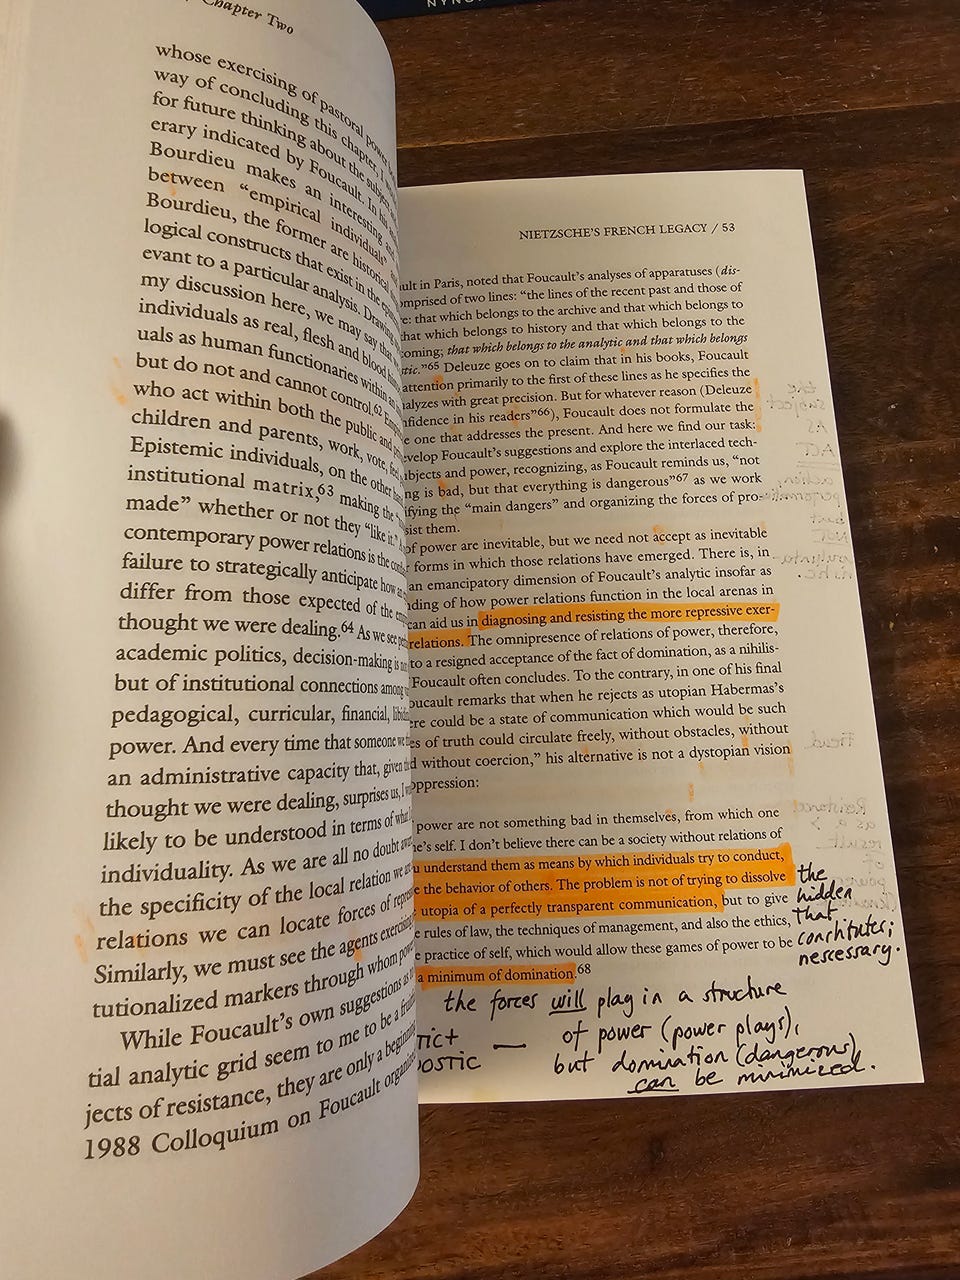 Chapter Two
whose exercising of pastoral power
way of concluding this chapter, I
for future thinking about the subject
erary indicated by Foucault. In his
Bourdieu makes an interesting and
between “empirical individuals”
Bourdieu, the former are historical
logical constructs that exist in the
evant to a particular analysis. Drawing
my discussion here, we may say that
individuals as real, flesh and blood
uals as human functionaries within an
but do not and cannot control.62
who act within both the public and
children and parents, work, vote,
Epistemic individuals, on the other
institutional matrix,63 making the
made” whether or not they “like it.”
contemporary power relations is the
failure to strategically anticipate how
differ from those expected of the
thought we were dealing.64 As we see
academic politics, decision-making is
but of institutional connections among
pedagogical, curricular, financial,
power. And every time that someone
an administrative capacity that, given
thought we were dealing, surprises us, I
likely to be understood in terms of what
individuality. As we are all no doubt
the specificity of the local relation we
relations we can locate forces of
Similarly, we must see the agents exercising
tutionalized markers through whom power
While Foucault’s own suggestions
tial analytic grid seem to me to be a
jects of resistance, they are only a beginning
1988 Colloquium on Foucault
NIETZSCHE’S FRENCH LEGACY / 53
ault in Paris, noted that Foucault’s analyses of apparatuses (dis-
mprised of two lines: “the lines of the recent past and those of
e: that which belongs to the archive and that which belongs to
that which belongs to history and that which belongs to the
oming; that which belongs to the analytic and that which belongs
tic.”65 Deleuze goes on to claim that in his books, Foucault
attention primarily to the first of these lines as he specifies the
alyzes with great precision. But for whatever reason (Deleuze
nfidence in his readers”66), Foucault does not formulate the
e one that addresses the present. And here we find our task:
evelop Foucault’s suggestions and explore the interlaced tech-
ubjects and power, recognizing, as Foucault reminds us, “not
ng is bad, but that everything is dangerous”67 as we work
ifying the “main dangers” and organizing the forces of pro-
sist them.
of power are inevitable, but we need not accept as inevitable
r forms in which those relations have emerged. There is, in
an emancipatory dimension of Foucault’s analytic insofar as
nding of how power relations function in the local arenas in
can aid us in diagnosing and resisting the more repressive exer-
relations. The omnipresence of relations of power, therefore,
to a resigned acceptance of the fact of domination, as a nihilis-
Foucault often concludes. To the contrary, in one of his final
oucault remarks that when he rejects as utopian Habermas’s
ere could be a state of communication which would be such
es of truth could circulate freely, without obstacles, without
d without coercion,” his alternative is not a dystopian vision
oppression:
power are not something bad in themselves, from which one
ne’s self. I don’t believe there can be a society without relations of
u understand them as means by which individuals try to conduct,
e the behavior of others. The problem is not of trying to dissolve
utopia of a perfectly transparent communication, but to give
e rules of law, the techniques of management, and also the ethics,
e practice of self, which would allow these games of power to be
a minimum of domination.68
the
hidden
that
constitutes;
nescessary.
the forces will play in a structure
of power (power plays),
but domination (dangerous)
can be minimized.
TIC+
OSTIC —